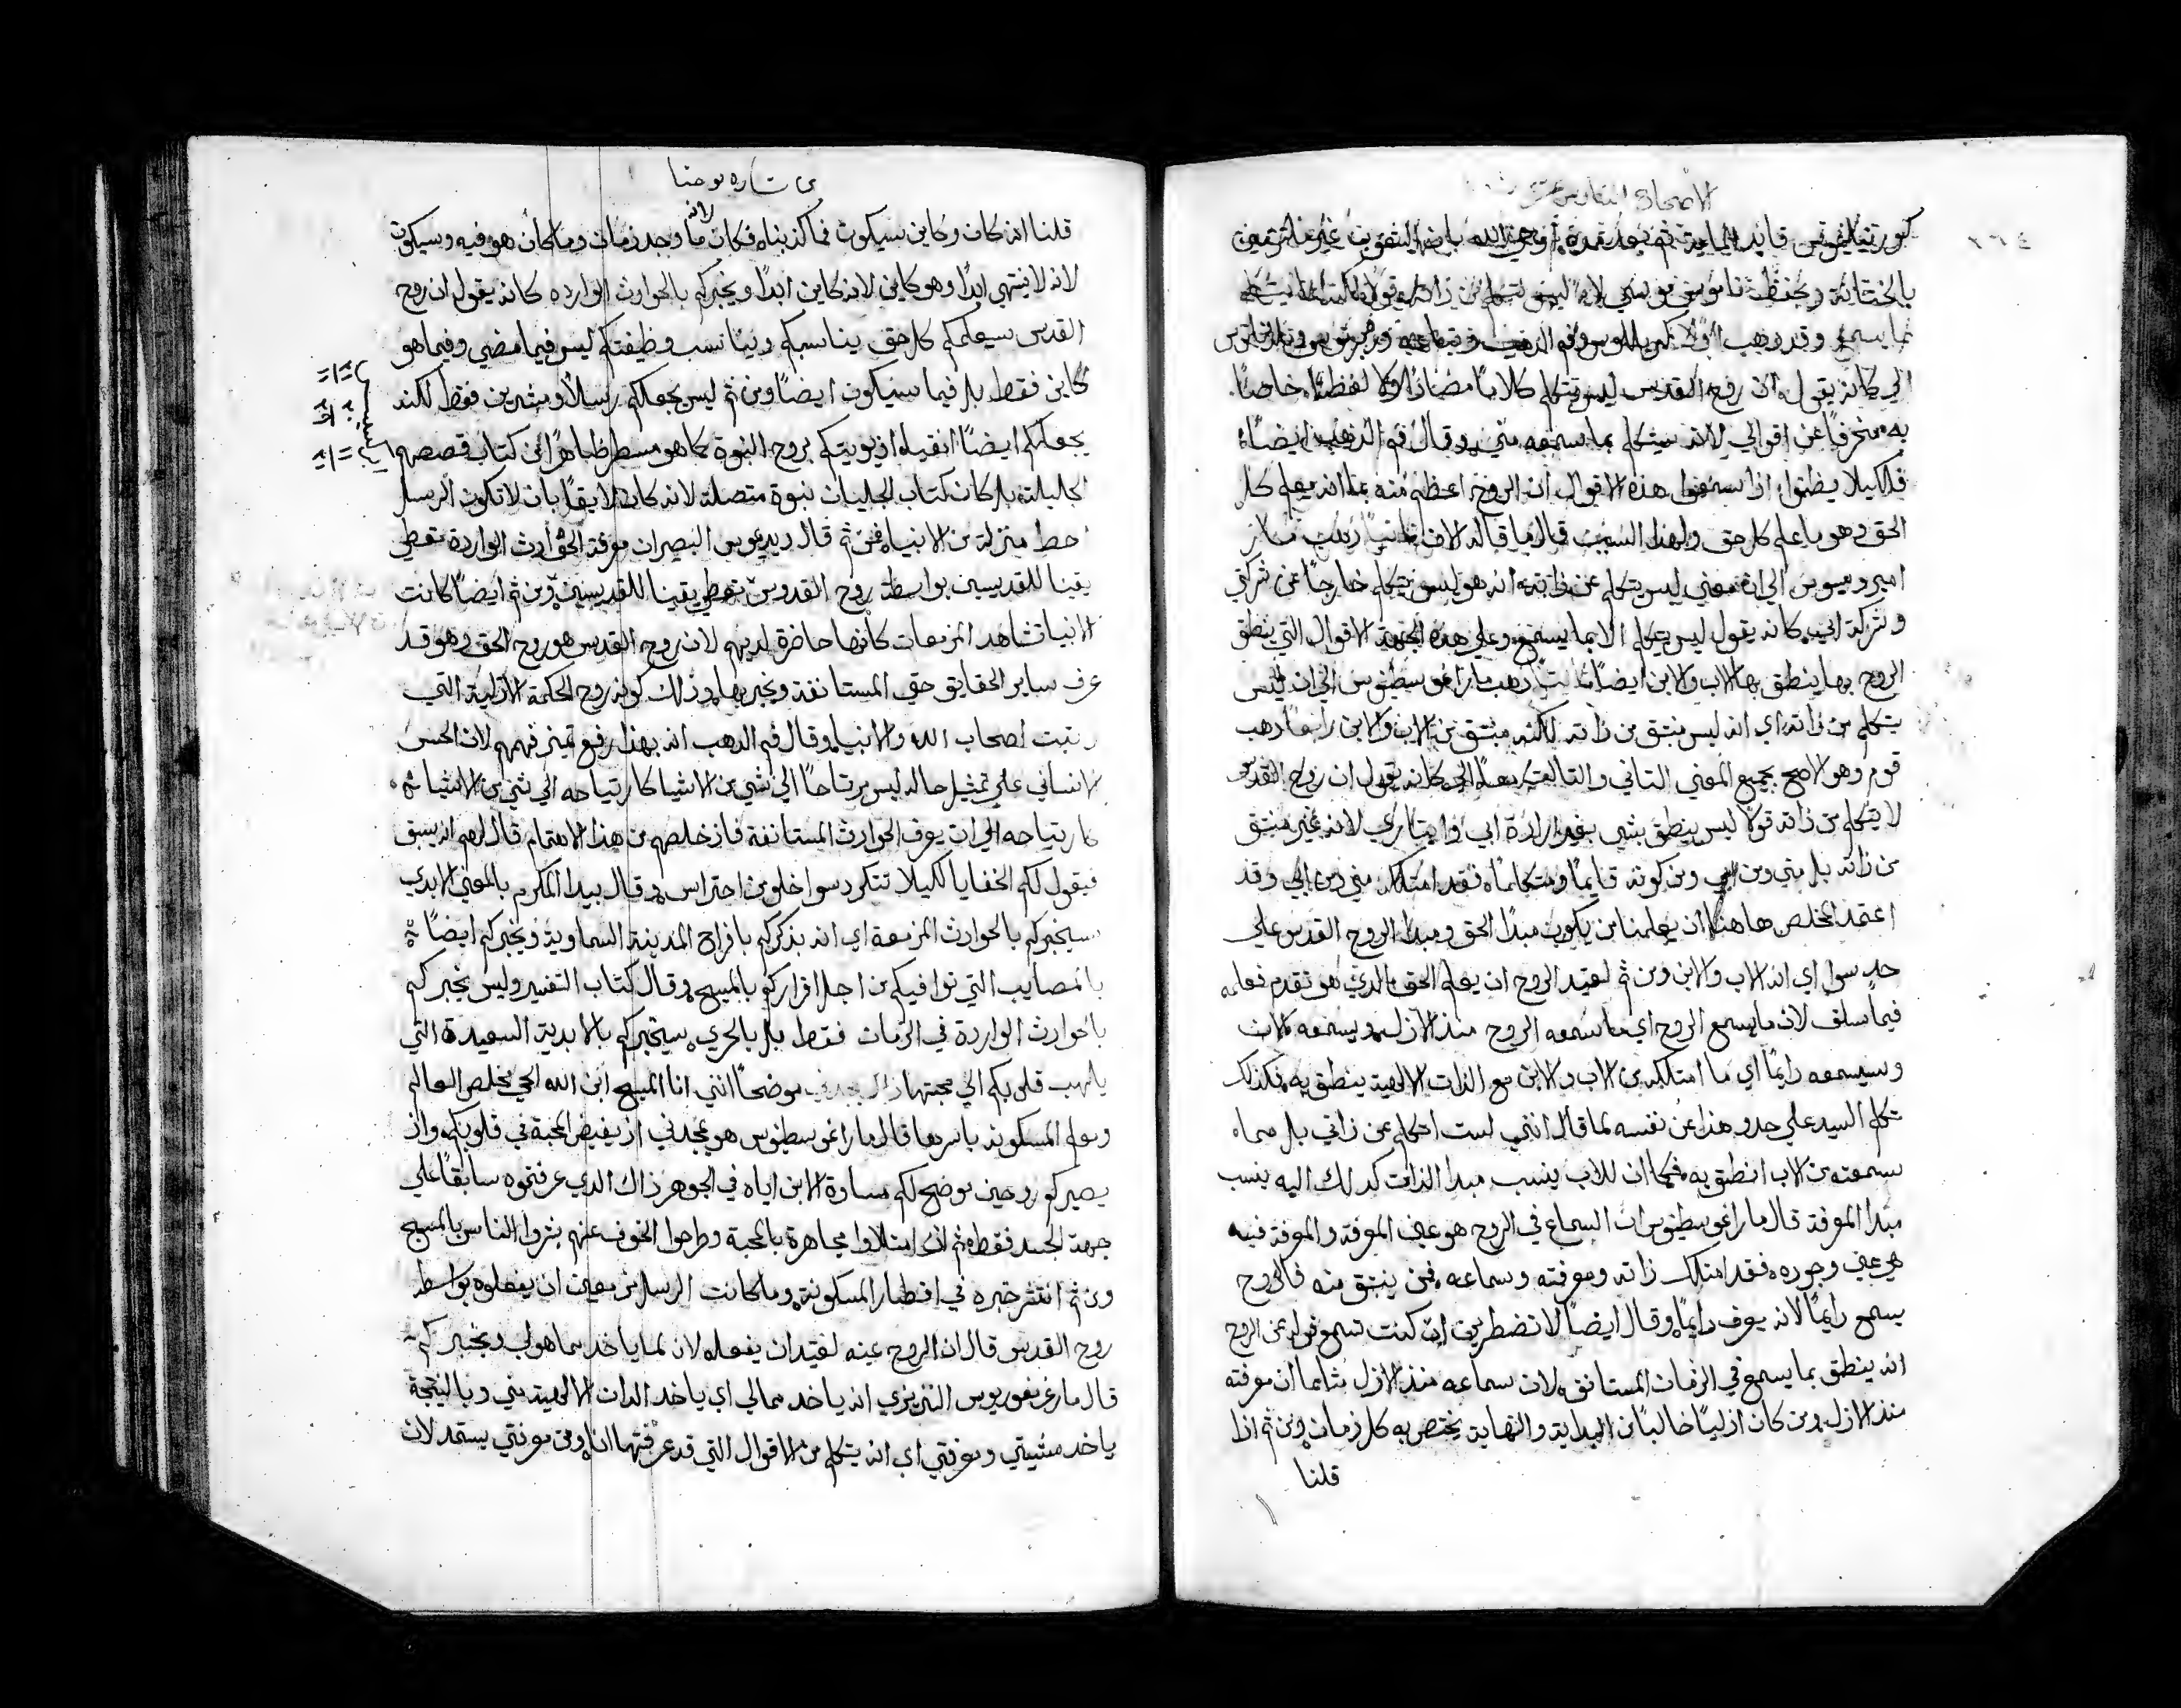 الاصحاح السادس عشر
٢٦٤
كورنيليوس قايد الماية ثم بعد مدة أوحي الله بانه الشعوب غير ملتزمين
بالختانة وبحفظ ناموس موسي لانه ليس يتكلم من ذاته قولاً لكنه انما يتكلم
بما يسمع وقد ذهب اولاً كيرللوس وفم الذهب
الي كانه يقول ان روح القدس ليس يتكلم كلاماً مضاداً ولا لفظاً خاصاً
به منحرفاً عن اقوالي لانه سيتكلم بما سمعه مني وقال فم الذهب ايضاً
فلكيلا يظنوا اذا سمعوا هذه الاقوال ان الروح اعظم منه بما انه يعلم كل
الحق وهو يا علم كل حق ولهذا السبب قال ما قاله لان ثانياً ذهب مار
امبروسيوس الي ان معني ليس يتكلم عن ذاته انه هو ليس يتكلم خارجاً عن شركتي
وشركة ابي كانه يقول ليس يتكلم الا بما يسمع وعلي هذه الجهة الاقوال التي ينطق
الروح بها ينطق بها الاب والابن ايضاً ثالثاً ذهب مار اغوسطينوس الي انه ليس
يتكلم من ذاته اي انه ليس منبثق من ذاته لكنه منبثق من الاب والابن رابعاً ذهب
قوم وهو الاصح بجميع المعني الثاني والثالث معاً الي كانه يقول ان روح القدس
لا يتكلم من ذاته قولاً ليس ينطق بشي بغير ارادة ابي وايثاري لانه غير منبثق
من ذاته بل مني ومن ابي ومن كونه قايماً ومتكلماً فقد امتلكه مني ومن ابي وقد
اعتمد المخلص هاهنا ان يعلمنا من يكون مبدا الحق ومبدا الروح القدس علي
حد سوا اي انه الاب والابن ومن ثم لعتيد الروح ان يعلم الحق الذي هو تقدم فعلمه
فيما سلف لان ما يسمع الروح اي ما سمعه الروح منذ الازل ويسمعه الان
وسيسمعه دايماً اي ما امتلكه من الاب والابن مع الذات الالهية ينطق به فكذلك
تكلم السيد علي حدو هذا عن نفسه لما قال انني لست اتكلم عن ذاتي بل مهما
سمعته من الاب انطق به فكما ان للاب ينسب مبدا الذات كذلك اليه ينسب
مبدا المعرفة قال مار اغوسطينوس ان السماع في الروح هو عين المعرفة والمعرفة فيه
هي عين وجوده فقد امتلك ذاته ومعرفته وسماعه فمن ينبثق منه فالروح
يسمع دايماً لانه يعرف دايماً وقال ايضاً لا تضطربن ان كنت تسمع قوله عن الروح
انه ينطق بما يسمع في الزمان المستانف لان سماعه منذ الازل بما ان معرفته
منذ الازل ومن كان ازلياً خالياً من البداية والنهاية يختص به كل زمان ومن ثم اذا
قلنا
من بشاره يوحنا
قلنا انه كان وكاين سيكون فما كذبناه فكان لانه ما وجد زمان وما كان هو فيه وسيكون
لانه لا ينتهي ابداً وهو كاين لانه كاين ابداً ويخبركم بالحوادث الوارده كانه يقول ان روح
القدس سيعلمكم كل حق يناسبكم ويناسب وظيفتكم ليس فيما مضي وفيما هو
كاين فقط بل فيما سيكون ايضاً ومن ثم ليس يجعلكم رسلاً ومبشرين فقط لكنه
يجعلكم ايضاً انبياء اذ يويتكم بروح النبوة كما هو مسطر ظاهراً في كتاب قصصهم
الجليلة بل كان كتاب الجليان نبوة متصلة لانه كان لايقاً بان لا تكون الرسل
احط منزلة من الانبياء فمن ثم قال ديديموس البصير ان معرفة الحوادث الواردة تعطي
يقينا للقديسين بواسطة روح القدوس تعطي يقينا للقديسين ومن ثم ايضاً كانت
الانبيا تشاهد المزمعات كانها حاضرة لديهم لان روح القدس هو روح الحق وهو قد
عرف ساير الحقايق حتي المستانفة ويخبر بها وذلك كونه روح الحكمة الازلية التي
رتبت اصحاب الله والانبياء وقال فم الذهب انه بهذا رفع تميز فهمهم لان الجنس
الانساني علي تمثيل حاله ليس مرتاحاً الي شي من الاشيا كارتياحه الي شي من الاشيا
كارتياحه الي ان يعرف الحوادث المستانفة فاذ خلصهم من هذا الاهتمام قال لهم انه يسبق
فيقول لكم الخفايا لكيلا تتكردسوا خلو من احتراس وقال بيدا المكرم بالمعني الابدي
سيخبركم بالحوادث المزمعة اي انه يذكركم بافراح المدينة السماوية ويخبركم ايضاً
بالمصايب التي توافيكم من اجل اقراركم بالمسيح وقال كتاب التفسير وليس يخبركم
بالحوادث الواردة في الزمان فقط بل بالحري سيخبركم بالابدية السعيدة التي
يلهب قلوبكم الي محبتها ذاك يمجدني موضحاً انني انا المسيح ابن الله الحي مخلص العالم
ومعلم المسكونه باسرها قال مار اغوسطينوس هو يمجدني اذ يفيض المحبة في قلوبكم واذ
يصيركم روحيين يوضح لكم مساوة الابن اياه في الجوهر ذاك الذي عرفتموه سابقاً علي
جهة الجسد فقط ثم لانه امتلاوا مجاهرة بالمحبة وطرحوا الخوف عنهم بشروا الناس بالمسيح
ومن ثم انتشر خبره في اقطار المسكونة وما كانت الرسل مزمعين ان يفعلوه بواسطة
روح القدس قال ان الروح عينه لعتيد ان يفعله لانه مما ياخد مما هو لي ويخبركم
قال مار غريغوريوس النزينزي انه ياخد مما لي اي ياخد الذات الالهية مني وبالنتيجة
ياخد مشيتي ومعرفتي اي انه يتكلم من الاقوال التي قد عرفتها انا ومن معرفتي يستمد لان